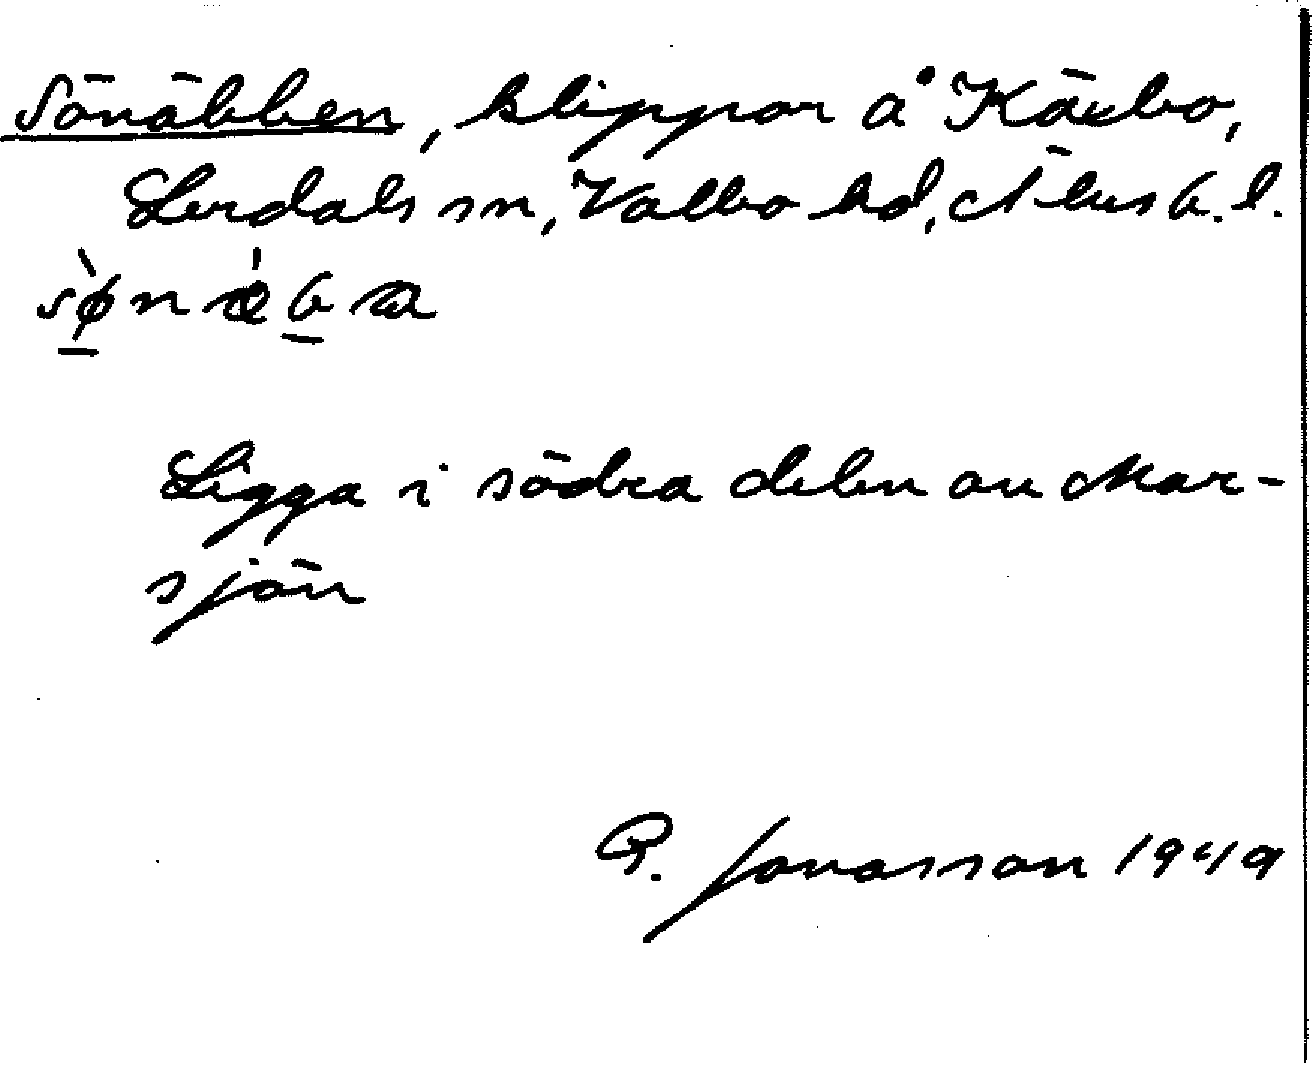 Sönäbben, klippor å Käxbo,
Lerdals sn, Valbo hd, Älvsb. l.
Ligga i södra delen av Mar-
sjön
P. Jonasson 1949